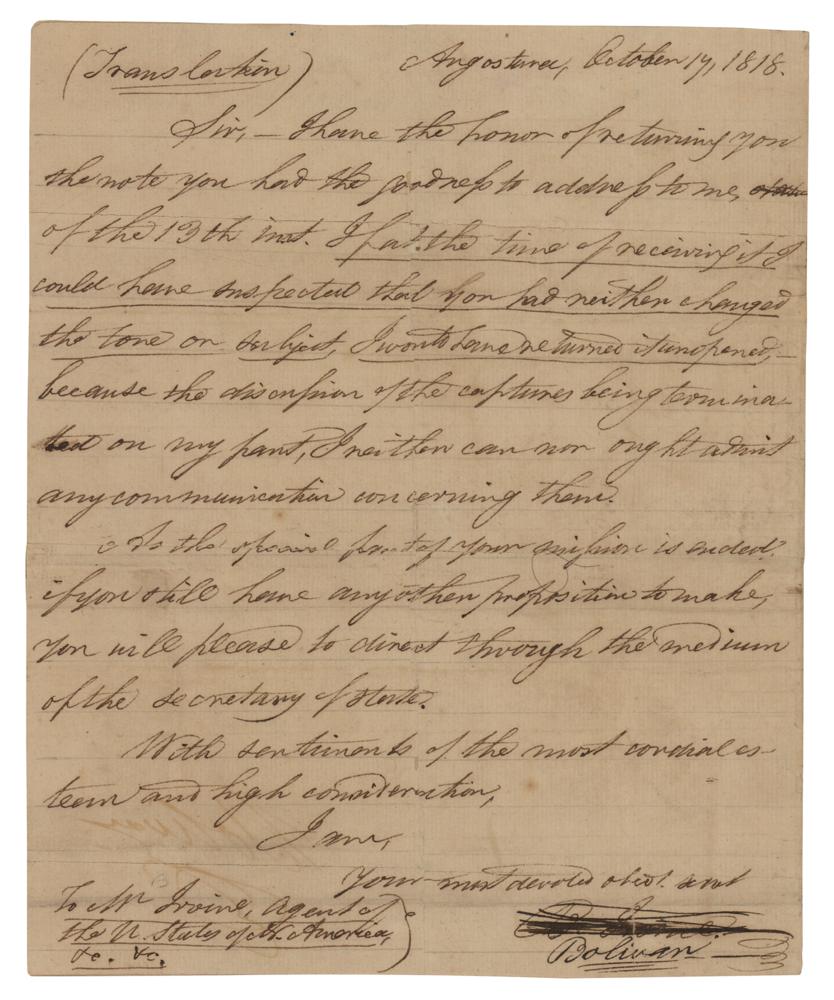 (Translation) Angostura, October 17, 1818.
Sir, — I have the honor of returning you
the note you had the goodness to address to me,
of the 13th inst. If at the time of receiving it I
could have suspected that you had neither changed
the tone or subject, I would have returned it unopened,
because the discussion of the captures being termina-
ted on my part, I neither can nor ought admit
any communication concerning them.
As the special part of your mission is ended,
if you still have any other proposition to make,
you will please to direct through the medium
of the secretary of state.
With sentiments of the most cordial es-
teem and high consideration,
I am,
Your most devoted obedt. servt
Bolivar
To Mr Irvine, Agent of
the U. States of N. America,
&c. &c.